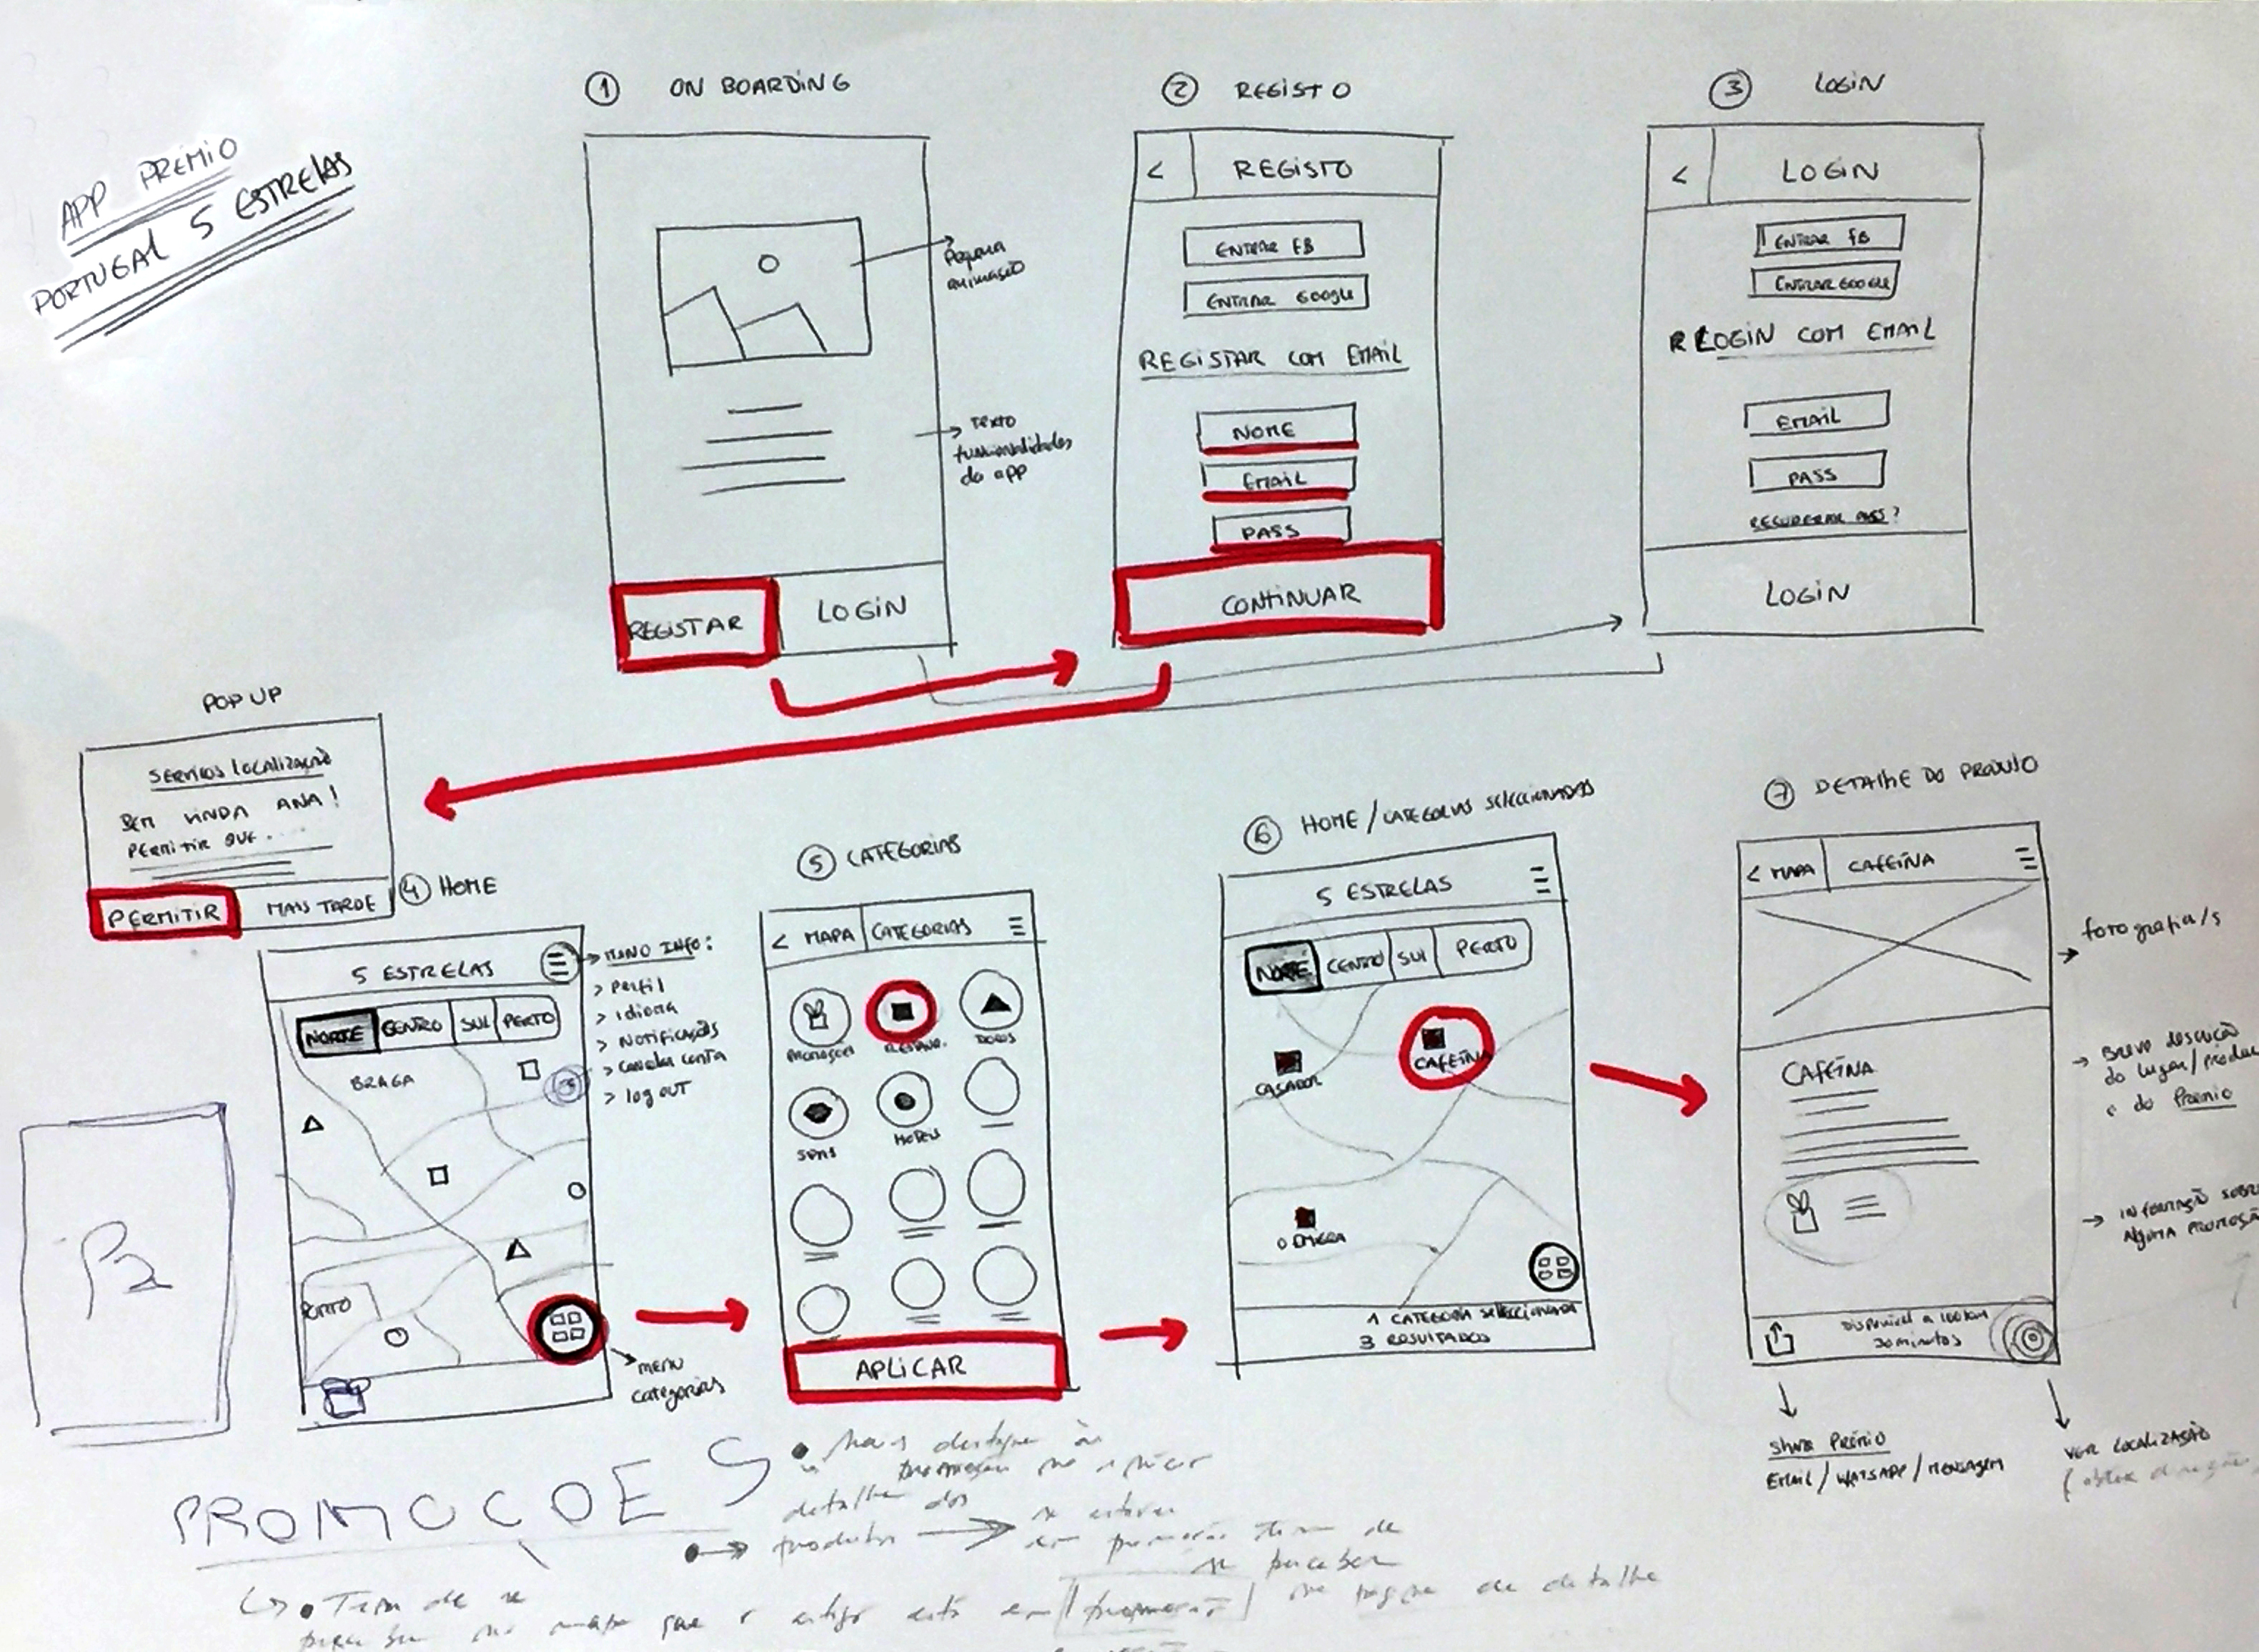 APP PREMIO
PORTUGAL 5 ESTRELAS
1 ON BOARDING
Pequena
animação
Texto
funcionalidades
da app
REGISTAR
LOGIN
2 REGISTO
< REGISTO
ENTRAR FB
ENTRAR GOOGLE
REGISTAR COM EMAIL
NOME
EMAIL
PASS
CONTINUAR
3 LOGIN
< LOGIN
ENTRAR FB
ENTRAR GOOGLE
LOGIN COM EMAIL
EMAIL
PASS
RECUPERAR PASS?
LOGIN
POP UP
SERVIÇOS LOCALIZAÇÃO
BEM VINDA ANA!
PERMITIR QUE....
PERMITIR
MAIS TARDE
4 HOME
5 ESTRELAS
NORTE CENTRO SUL PERTO
BRAGA
PORTO
INFO:
> Perfil
> Idioma
> Notificações
> Cancelar conta
> log OUT
menu
categorias
P2
5 CATEGORIAS
< MAPA CATEGORIAS
PROMOÇÕES
RESTAUR.
SPAS
HOTEIS
APLICAR
6 HOME / CATEGORIAS SELECCIONADAS
5 ESTRELAS
NORTE CENTRO SUL PERTO
CAFEÍNA
1 CATEGORIA SELECCIONADA
3 RESULTADOS
7 DETALHE DO PRODUTO
< MAPA CAFEÍNA
CAFEÍNA
DISPONIVEL A 100KM
30 minutos
fotografia/s
Breve descrição
do lugar/
e do Premio
INFORMAÇÃO SOBRE
Alguma PROMOÇÃO
SHARE PRÉMIO
EMAIL / WATSAPP / MENSAGEM
VER LOCALIZAÇÃO
PROMOÇOES
• Mais destaque às
detalhe dos
produtos
em promoção Tem de
se perceber
• Tem de se
perceber no mapa que o artigo está em promoção na pagina de detalhe